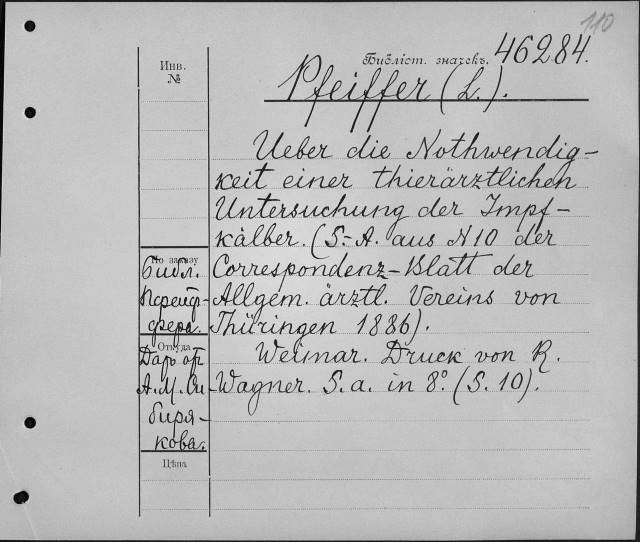 110
Библіот. значекъ. 46284.
Инв.
№
Pfeiffer (L.).
Ueber die Nothwendig-
keit einer thierärztlichen
Untersuchung der Impf-
kälber. (S.-A. aus N 10 der
Correspondenz-Blatt der
Allgem. ärztl. Vereins von
Thüringen 1886).
Weimar. Druck von R.
Wagner. S. a. in 8º. (S. 10).
По заказу
Библ.
Пфейф-
фера.
Откуда
Даръ от
А. М. Си-
биря-
кова.
Цѣна